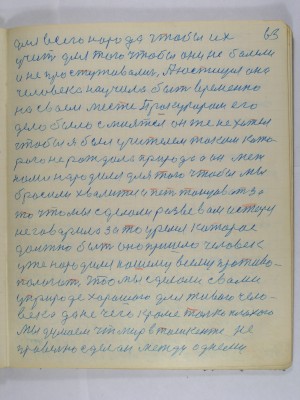 63
для всего народа чтобы их
учит для того чтобы они не болели
и не простуживались, А юстиция она
человека научила быт временно
на своем месте Прокурорам его
дело было смеятся он же не хотел
чтобы я был учителем таким кото
рого не рождала природа а он
нами народился для того чтобы мы
бросили хвалится и петь танцоват за
то что мы сделали разве вам история
не говарила за то время которое
должно быть оно пришло человек
уже народился нашему всему противо
положен, Что мы сделали с вами
в природе хорошого для живого чело
века да не чего кроме только плохого
Мы думаем что мир в ташкенте не
правельно сделан между одними